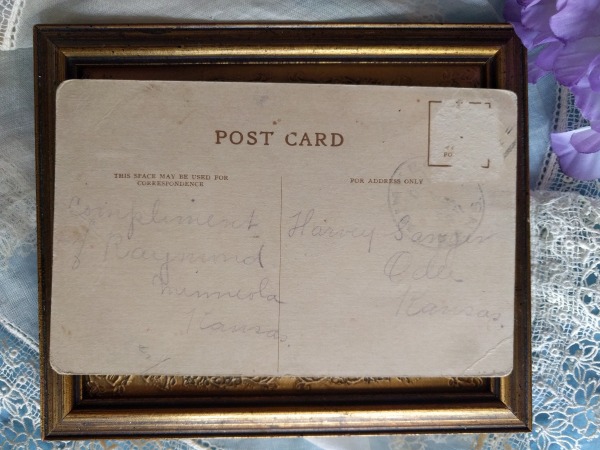 POST CARD
THIS SPACE MAY BE USED FOR
CORRESPONDENCE
FOR ADDRESS ONLY
Compliment
of Raymond
Minneola
Kansas.
Harvey
Kansas.